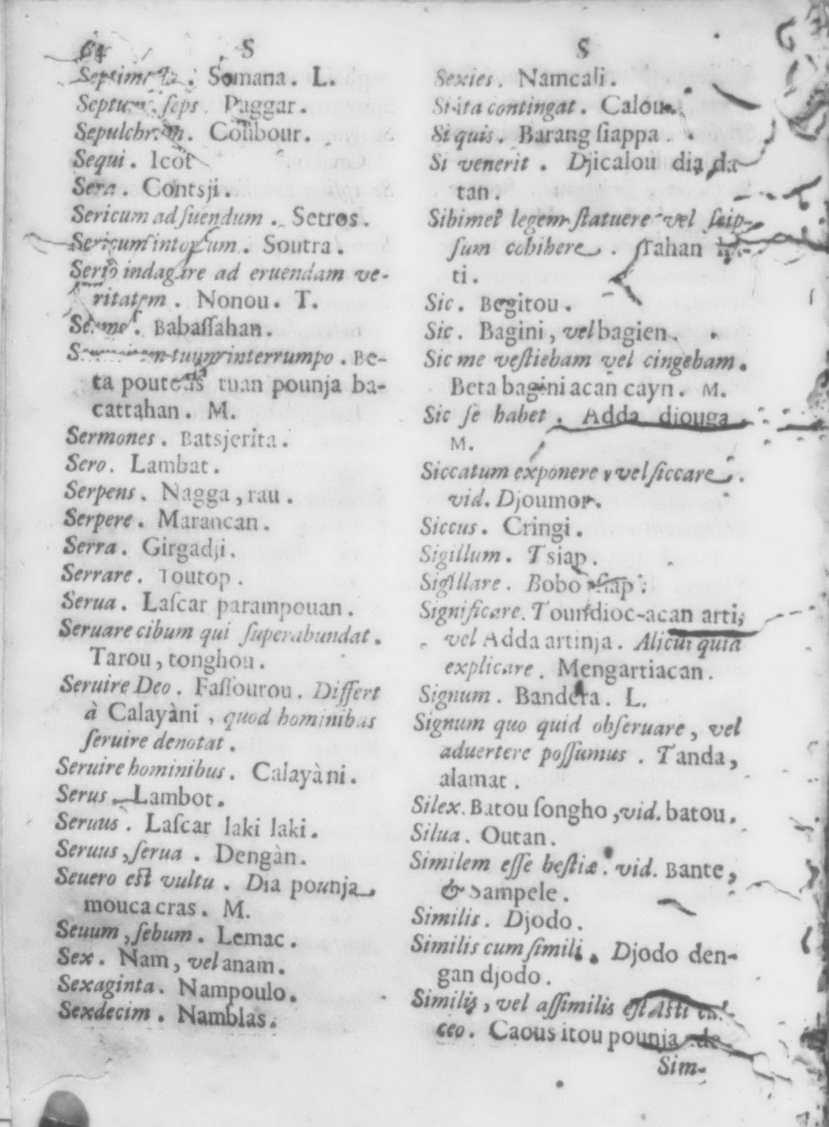 64 S
Septimana. Somana. L.
Septum, seps. Paggar.
Sepulchrum. Coubour.
Sequi. Icot
Sera. Contsji.
Sericum ad suendum. Setros.
Sericum intorsum. Soutra.
Seriò indagare ad eruendam ve-
ritatem. Nonou. T.
Sermo. Babassahan.
tuum interrumpo. Be-
ta pouteus tuan pounja ba-
cattahan. M.
Sermones. Batsjerita.
Sero. Lambat.
Serpens. Nagga, rau.
Serpere. Marancan.
Serra. Girgadji.
Serrare. Toutop.
Serua. Lascar parampouan.
Seruare cibum qui superabundat.
Tarou, tonghou.
Seruire Deo. Fassourou. Differt
à Calayàni, quod hominibus
seruire denotat.
Seruire hominibus. Calayàni.
Serus. Lambot.
Seruus. Lascar laki laki.
Seruus, serua. Dengàn.
Seuero est vultu. Dia pounja
mouca cras. M.
Seuum, sebum. Lemac.
Sex. Nam, vel anam.
Sexaginta. Nampoulo.
Sexdecim. Namblas.
S
Sexies. Namcali.
Si ita contingat. Calou.
Si quis. Barang siappa.
Si venerit. Djicalou dia da-
tan.
Sibimet legem statuere vel seip-
sum cohibere. Tahan
ti.
Sic. Begitou.
Sic. Bagini, vel bagien.
Sic me vestiebam vel cingebam.
Beta bagini acan cayn. M.
Sic se habet. Adda djouga
M.
Siccatum exponere, vel siccare.
vid. Djoumor.
Siccus. Cringi.
Sigillum. Tsiap.
Sigillare. Bobo tsiap.
Significare. Toundioc-acan arti,
vel Adda artinja. Alicui quid
explicare. Mengartiacan.
Signum. Bandera. L.
Signum quo quid obseruare, vel
aduertere possumus. Tanda,
alamat.
Silex. Batou songho, vid. batou.
Silua. Outan.
Similem esse bestiæ. vid. Bante,
& Sampele.
Similis. Djodo.
Similis cum simili. Djodo den-
gan djodo.
Similis, vel assimilis est isti cal-
ceo. Caous itou pounja de
Sim-